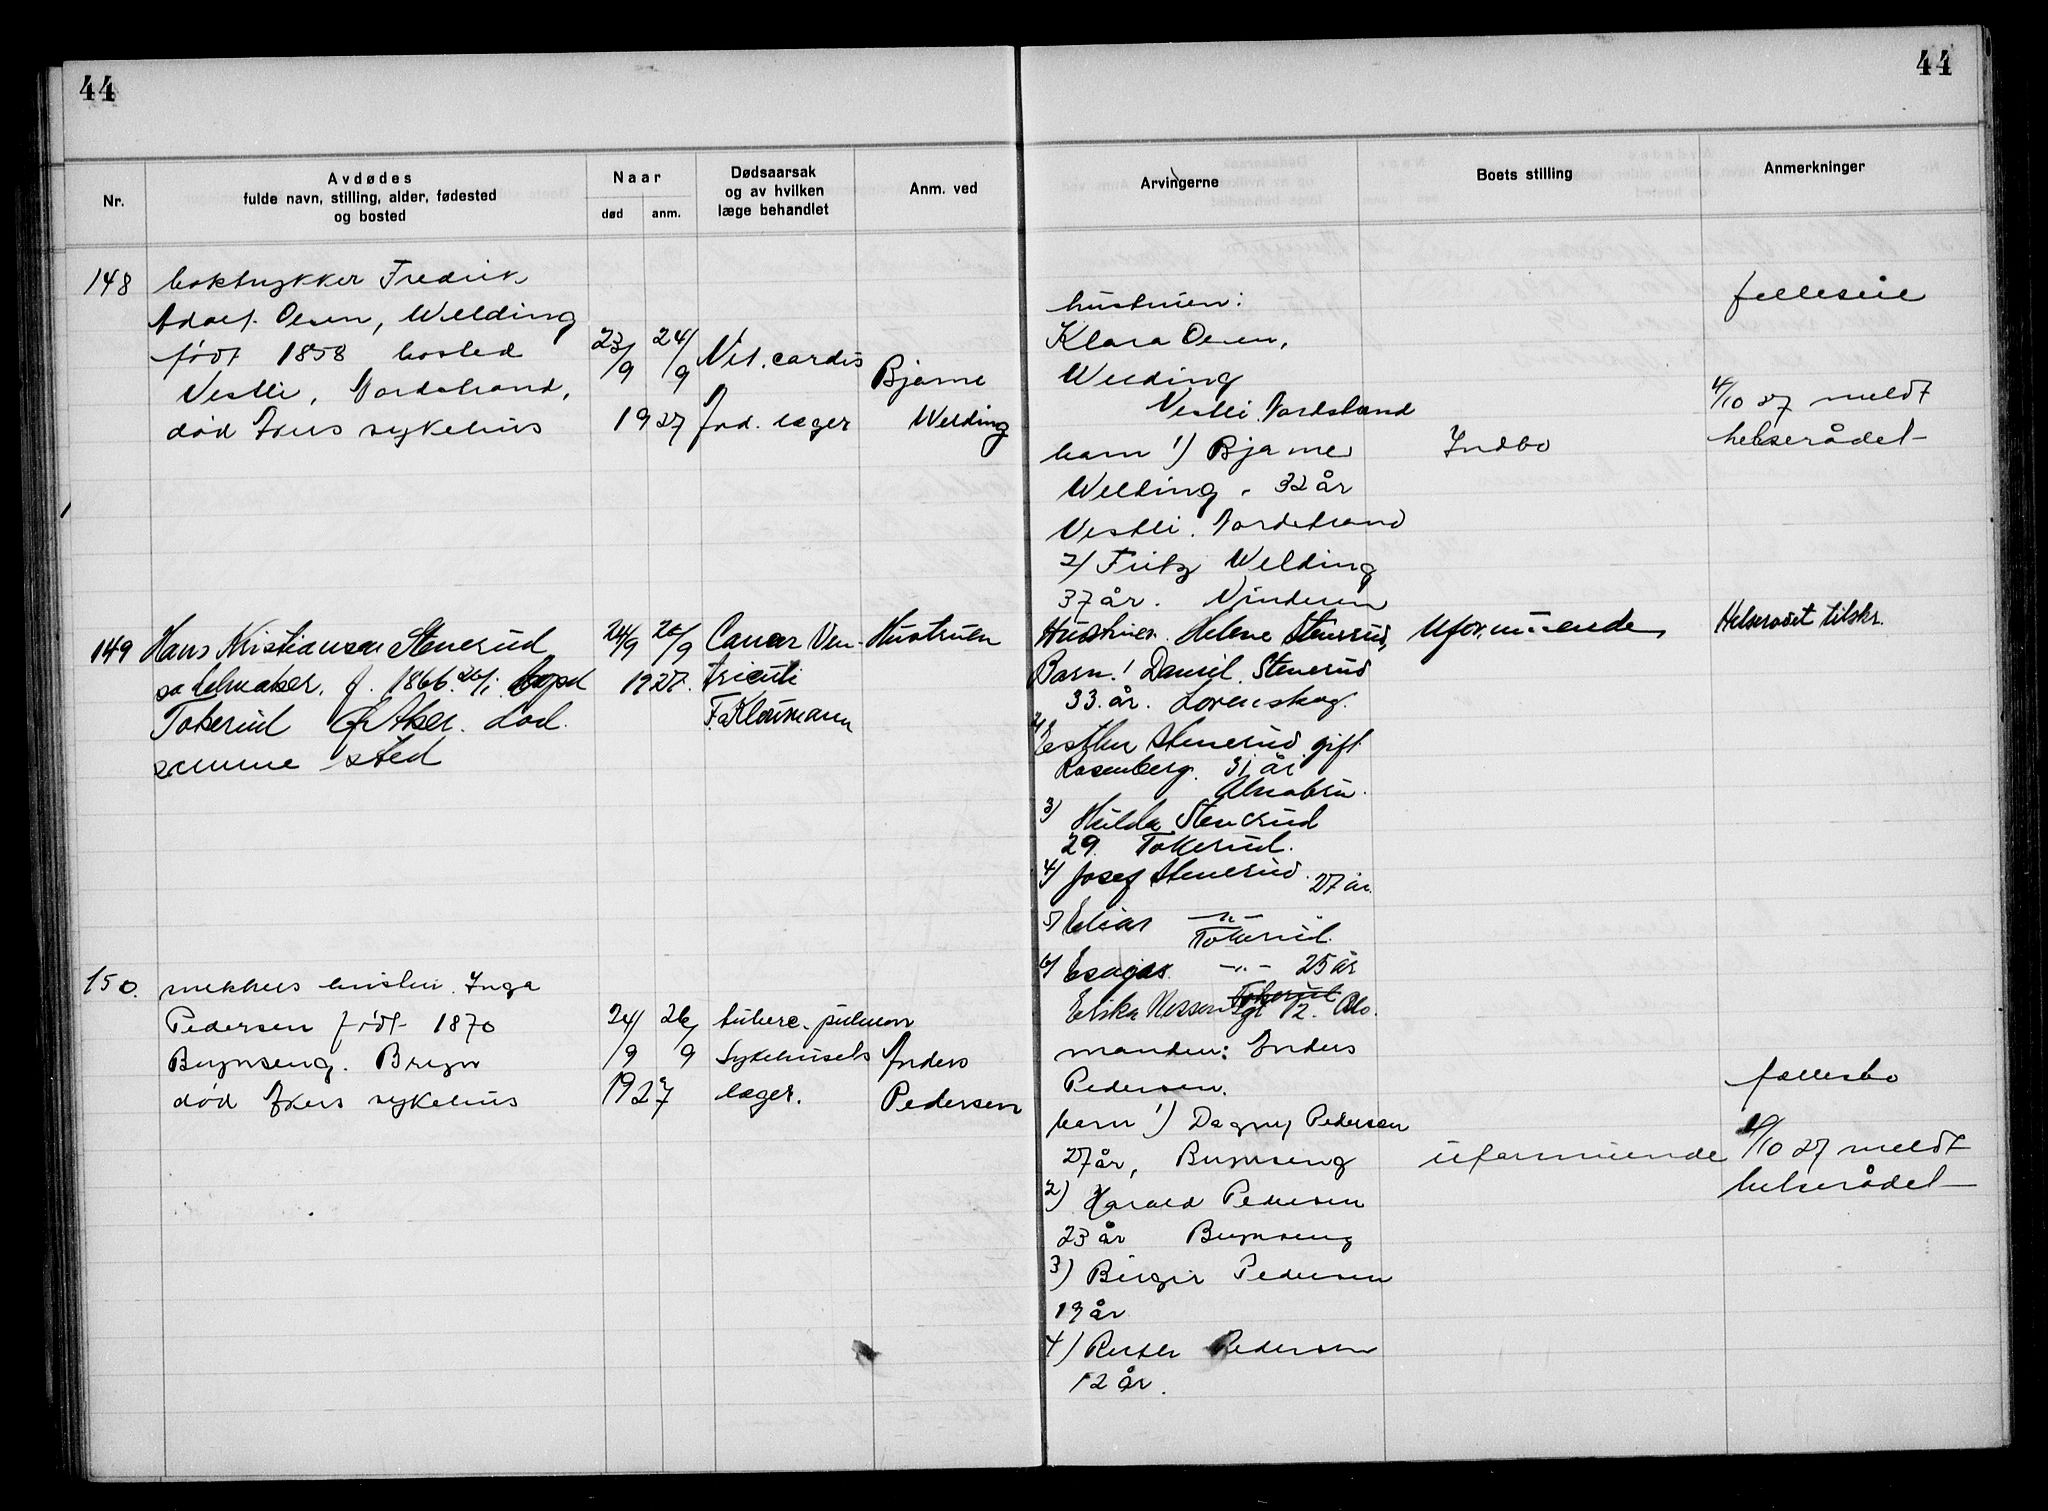 44
44
Nr.
Avdødes
fulde navn, stilling, alder, fødested
og bosted
Naar
død
anm.
Dødsaarsak
og av hvilken
læge behandlet
Anm. ved
Arvingerne
Boets stilling
Anmerkninger
148
boktrykker Fredrik
Adolf Olsen, Welding
født 1858 bosted
Vestli, Nordstrand,
død Akers sykehus
23/9 24/9
1927
Vit. cordis
læger
Bjarne
Welding
hustruen:
Klara Olsen,
Welding
Vestli. Nordstrand
barn 1) Bjarne
Welding. 32 år
Vestli. Nordstrand
2) Fritz Welding
37 år. Vinderen
Indbo
felleseie
4/10 27 meldt
helserådet
149
Hans Kristiansen Stenerud
f. 1866
Tokerud Ø. Aker. død
samme sted
24/9 26/9
1927.
Cancer Ven-
triculi
Hustruen
Hustruen. Helene Stenerud,
Barn: Daniel. Stenerud
33. år. Lørenskog.
2) Esther Stenerud gift
Rosenberg. 31 år
Alnabru.
3)
Hulda Stenerud
29. Tokerud.
4) Josef Stenerud. 27 år.
5) Elias -"-
Tokerud.
6) Esajas. -"- 25 år
Tokerud
Uformuende
Helserådet tilskr.
150.
hustru. Inga
Pedersen født 1870
Brynseng. Bryn
død Akers sykehus
24/9 26/9
1927
tuberc. pulmon
Sykehusets
læger.
Anders
Pedersen
manden: Anders
Pedersen.
barn 1) Dagny Pedersen
27 år, Brynseng
2) Harald Pedersen
23 år Brynseng
3) Birger Pedersen
19 år
4) Ruth Pedersen
12 år.
uformuende
fællesbo
4/10 27 meldt
helserådet